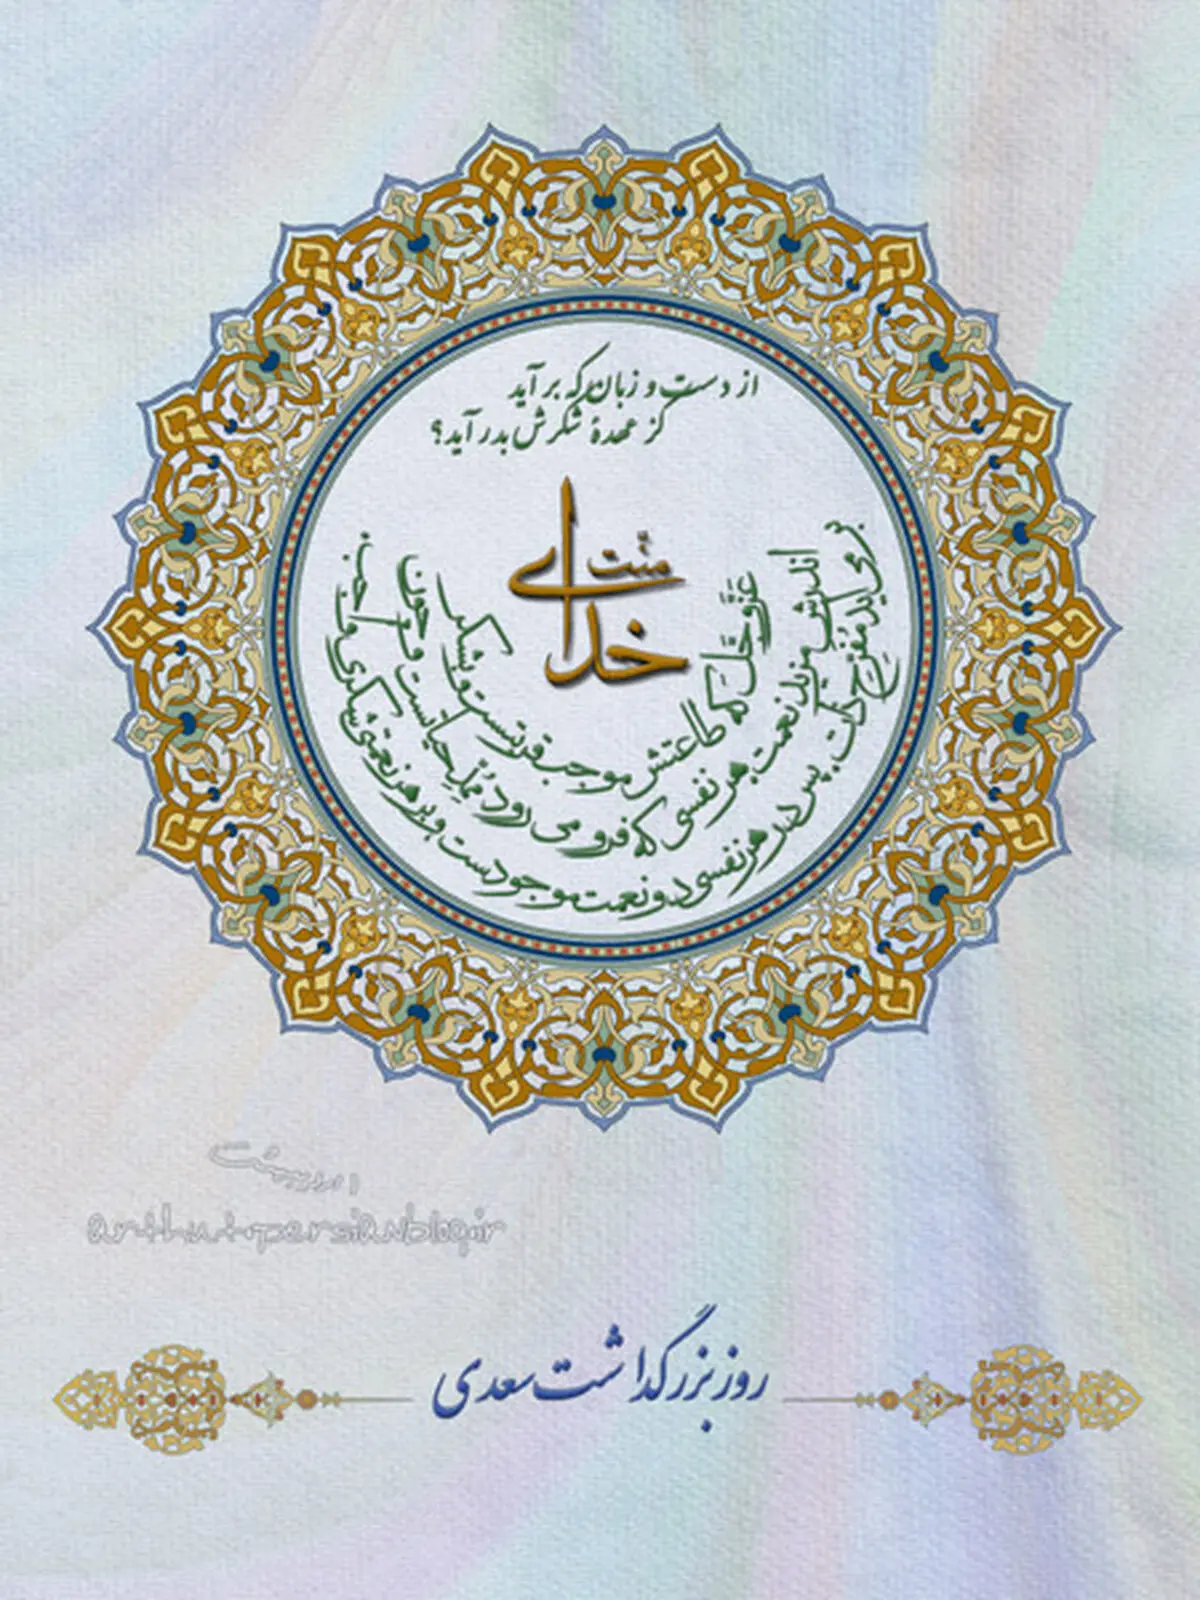 از دست و زبان که برآید
کز عهدهٔ شکرش بدر آید؟
منّت
خدای
عَزَّوَجَلَّ که طاعتش موجب قربتست و بشکر
اندرش مزید نعمت هر نفسی که فرو می رود مُمِدِّ حیاتست و چون
بر می آید مُفَرِّحِ ذات پس در هر نفسی دو نعمت موجودست و بر هر نعمتی شکری واجب.
اردیبهشت
arthut.persianblog.ir
روز بزرگداشت سعدی